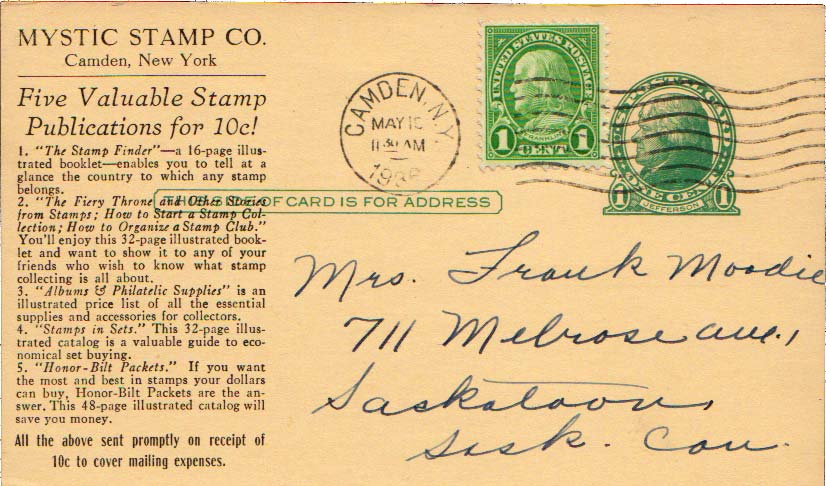 MYSTIC STAMP CO.
Camden, New York
Five Valuable Stamp
Publications for 10c!
1. "The Stamp Finder"—a 16-page illus-
trated booklet—enables you to tell at a
glance the country to which any stamp
belongs.
2. "The Fiery Throne and Other Stories
from Stamps; How to Start a Stamp Col-
lection; How to Organize a Stamp Club."
You'll enjoy this 32-page illustrated book-
let and want to show it to any of your
friends who wish to know what stamp
collecting is all about.
3. "Albums & Philatelic Supplies" is an
illustrated price list of all the essential
supplies and accessories for collectors.
4. "Stamps in Sets." This 32-page illus-
trated catalog is a valuable guide to eco-
nomical set buying.
5. "Honor-Bilt Packets." If you want
the most and best in stamps your dollars
can buy, Honor-Bilt Packets are the an-
swer. This 48-page illustrated catalog will
save you money.
All the above sent promptly on receipt of
10c to cover mailing expenses.
CAMDEN, N.Y.
MAY
11 30 AM
UNITED STATES POSTAGE
FRANKLIN
1 CENT 1
ONE CENT
1 JEFFERSON 1
THIS SIDE OF CARD IS FOR ADDRESS
Mrs. Frank Moodie
711 Melrose ave.,
Saskatoon,
Sask. Can.